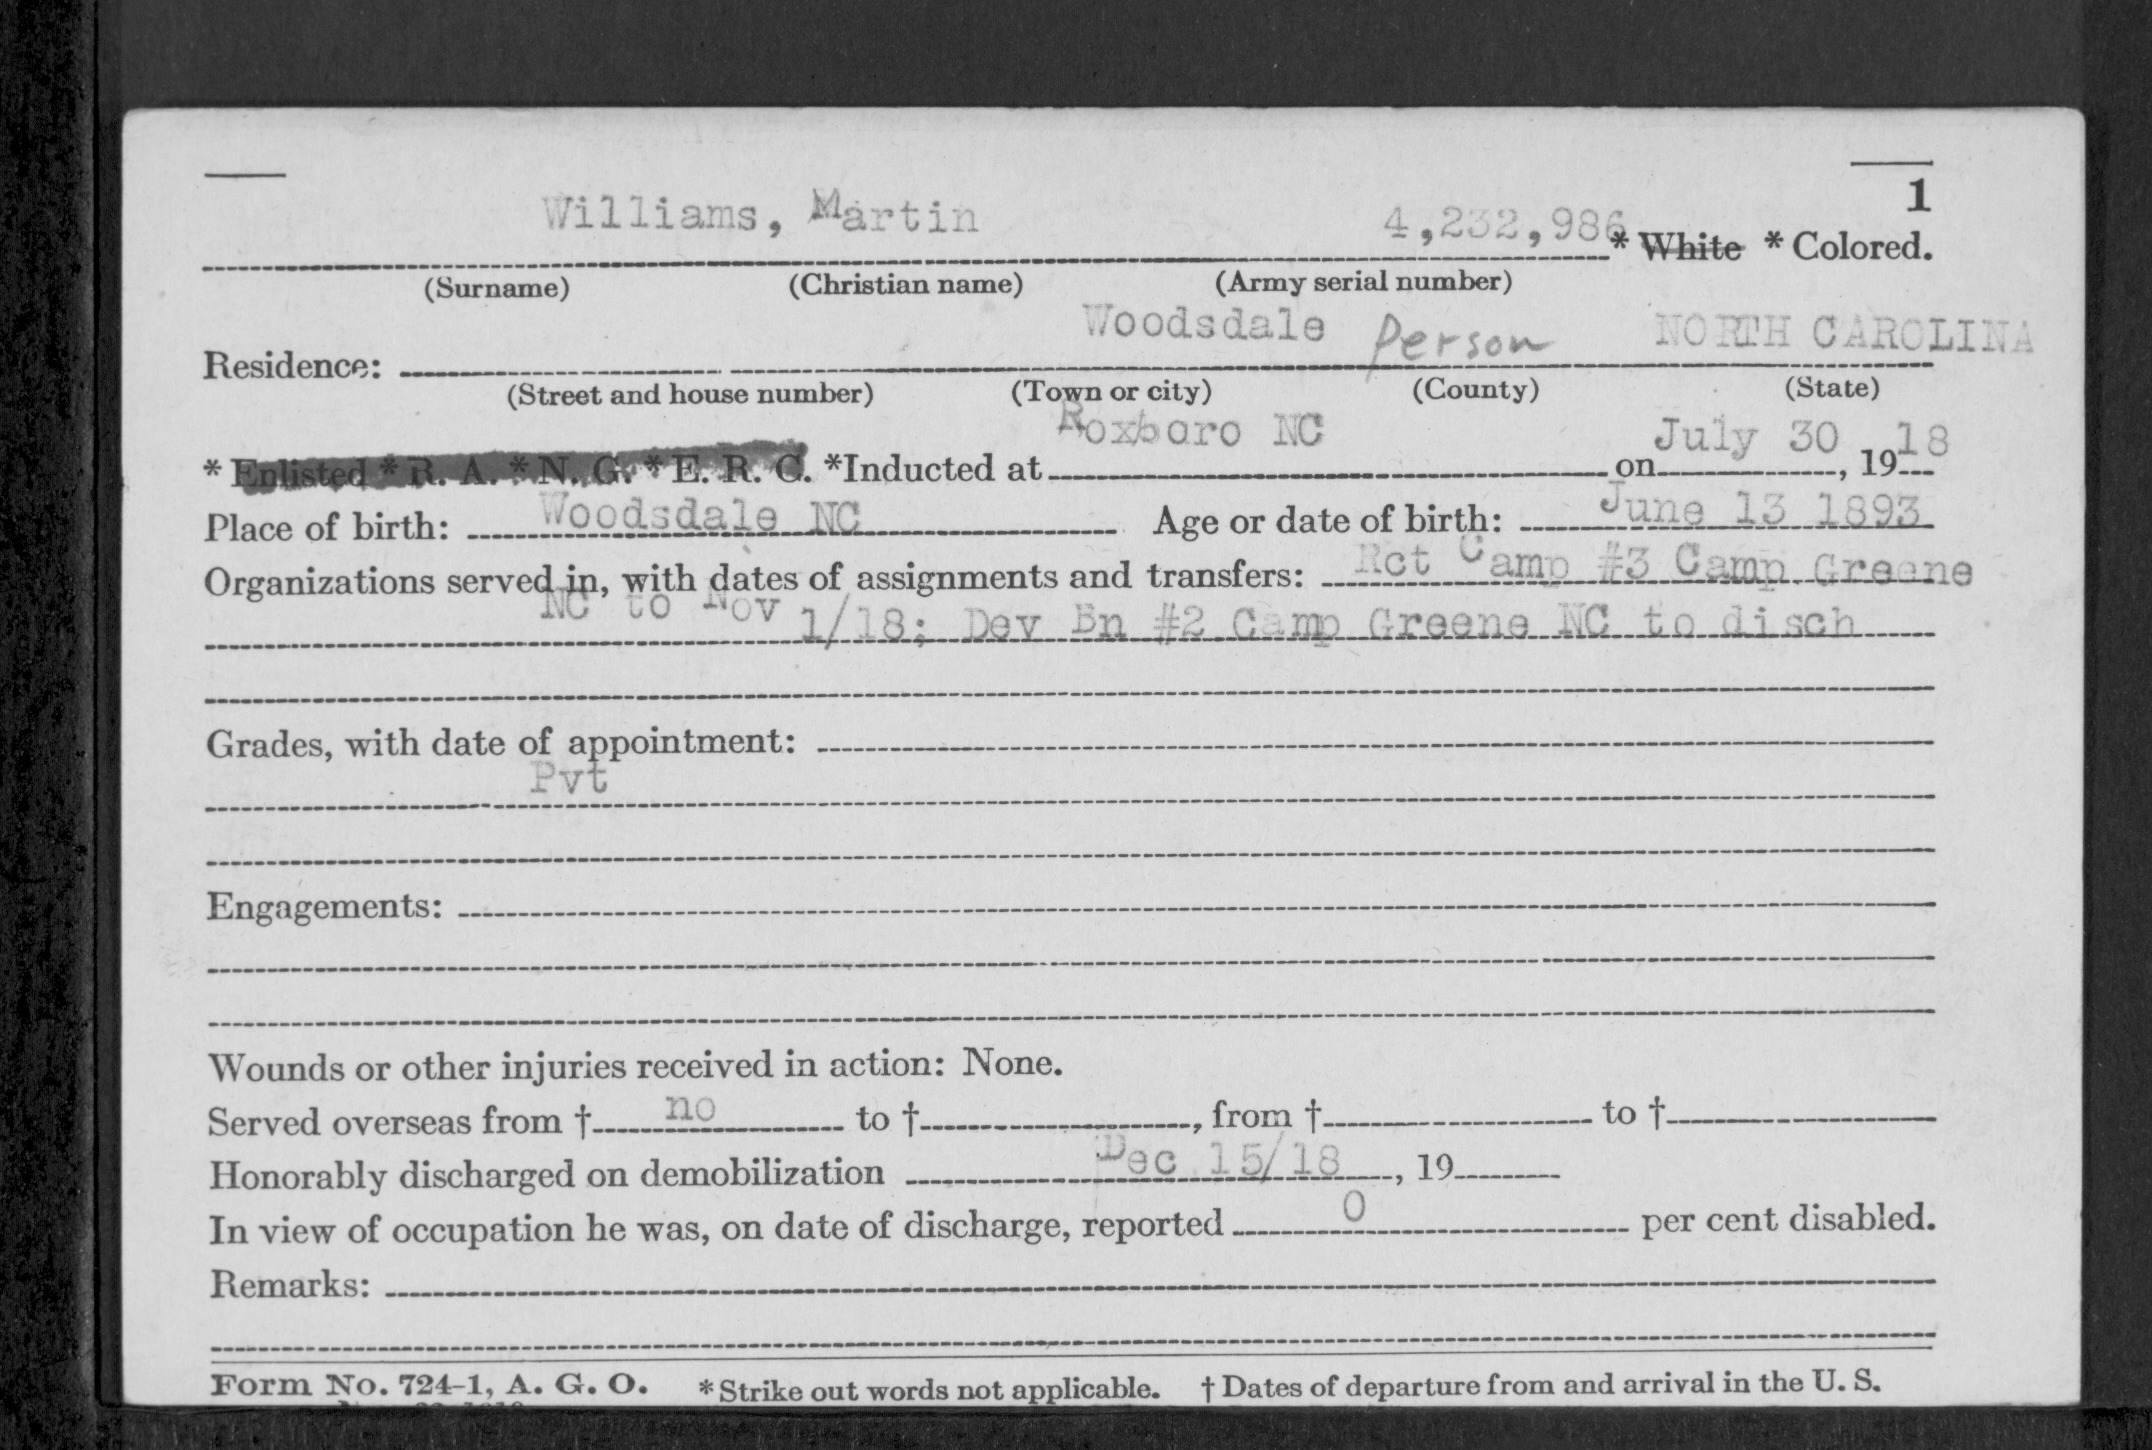 1
Williams, Martin 4,232,986 * White * Colored.
(Surname) (Christian name) (Army serial number)
Woodsdale Person NORTH CAROLINA
Residence:
(Street and house number) (Town or city) (County) (State)
Roxboro NC July 30 18
* Enlisted * R. A. * N. G. * E. R. C. *Inducted at on , 19
Place of birth: Woodsdale NC Age or date of birth: June 13 1893
Organizations served in, with dates of assignments and transfers: Rct Camp #3 Camp Greene
NC to Nov 1/18; Dev Bn #2 Camp Greene NC to disch
Grades, with date of appointment:
Pvt
Engagements:
Wounds or other injuries received in action: None.
Served overseas from † no to † , from † to †
Honorably discharged on demobilization Dec 15/18 , 19
In view of occupation he was, on date of discharge, reported 0 per cent disabled.
Remarks:
Form No. 724-1, A. G. O. * Strike out words not applicable. † Dates of departure from and arrival in the U. S.